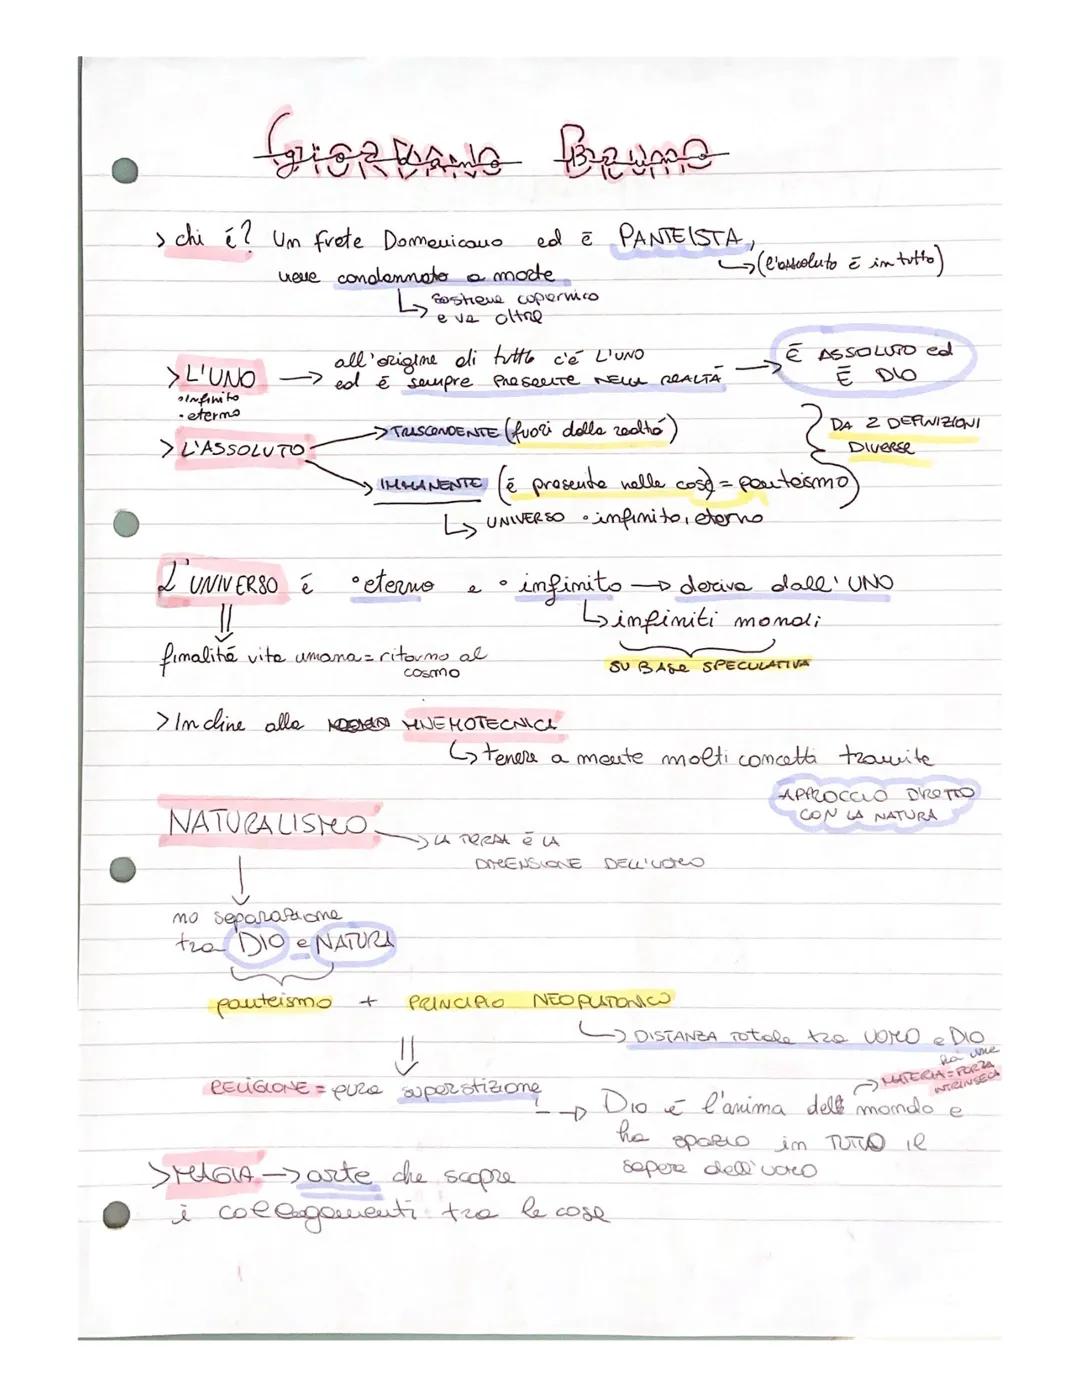 GIORDANO BRUNO
> chi é? Un frate Domenicano ed é PANTEISTA,
↳ (l'assoluto é in tutto)
viene condannato a morte
↳ sostiene copernico
e va oltre
> L'UNO → all'origine di tutto c'é L'UNO
ed é sempre PRESENTE NELLA REALTÀ → É ASSOLUTO ed
É DIO
• infinito
• eterno
> L'ASSOLUTO → TRASCENDENTE (fuori dalla realtà)
→ IMMANENTE (é presente nelle cose) = panteismo)
DA 2 DEFINIZIONI
DIVERSE
↳ UNIVERSO • infinito, eterno
L'UNIVERSO é • eterno e • infinito → deriva dall'UNO
↳ infiniti mondi
SU BASE SPECULATIVA
finalità vita umana = ritorno al
cosmo
> Incline alla MNEMOTECNICA
↳ tenere a mente molti concetti tramite
APPROCCIO DIRETTO
CON LA NATURA
NATURALISMO → LA TERRA É LA
DIMENSIONE DELL'UOMO
no separazione
tra DIO e NATURA
panteismo + PRINCIPIO NEOPLATONICO
↳ DISTANZA totale tra UOMO e DIO
ha una
→ MATERIA = FORZA
INTRINSECA
RELIGIONE = pura superstizione
→ DIO é l'anima del mondo e
ha spazio in TUTTO il
sapere dell'uomo
> MAGIA → arte che scopre
i collegamenti tra le cose